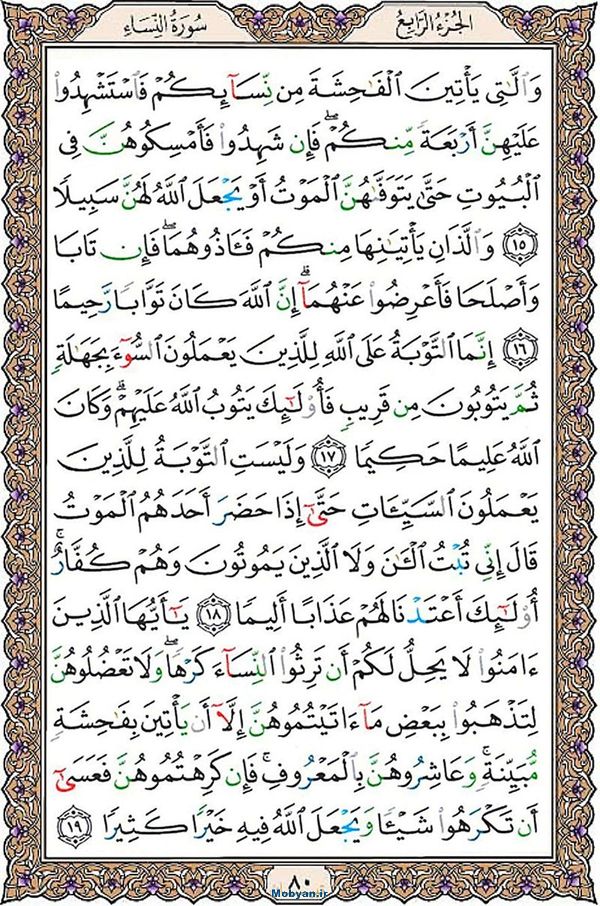 الجُزْءُ الرَّابِعُ
سُورَةُ النِّسَاءِ
وَٱلَّٰتِى يَأْتِينَ ٱلْفَٰحِشَةَ مِن نِّسَآئِكُمْ فَٱسْتَشْهِدُوا۟
عَلَيْهِنَّ أَرْبَعَةً مِّنكُمْ ۖ فَإِن شَهِدُوا۟ فَأَمْسِكُوهُنَّ فِى
ٱلْبُيُوتِ حَتَّىٰ يَتَوَفَّىٰهُنَّ ٱلْمَوْتُ أَوْ يَجْعَلَ ٱللَّهُ لَهُنَّ سَبِيلًا
١٥ وَٱلَّذَانِ يَأْتِيَٰنِهَا مِنكُمْ فَـَٔاذُوهُمَا ۖ فَإِن تَابَا
وَأَصْلَحَا فَأَعْرِضُوا۟ عَنْهُمَآ ۗ إِنَّ ٱللَّهَ كَانَ تَوَّابًا رَّحِيمًا
١٦ إِنَّمَا ٱلتَّوْبَةُ عَلَى ٱللَّهِ لِلَّذِينَ يَعْمَلُونَ ٱلسُّوٓءَ بِجَهَٰلَةٍ
ثُمَّ يَتُوبُونَ مِن قَرِيبٍ فَأُو۟لَٰٓئِكَ يَتُوبُ ٱللَّهُ عَلَيْهِمْ ۗ وَكَانَ
ٱللَّهُ عَلِيمًا حَكِيمًا ١٧ وَلَيْسَتِ ٱلتَّوْبَةُ لِلَّذِينَ
يَعْمَلُونَ ٱلسَّيِّـَٔاتِ حَتَّىٰٓ إِذَا حَضَرَ أَحَدَهُمُ ٱلْمَوْتُ
قَالَ إِنِّى تُبْتُ ٱلْـَٰٔنَ وَلَا ٱلَّذِينَ يَمُوتُونَ وَهُمْ كُفَّارٌ ۚ
أُو۟لَٰٓئِكَ أَعْتَدْنَا لَهُمْ عَذَابًا أَلِيمًا ١٨ يَٰٓأَيُّهَا ٱلَّذِينَ
ءَامَنُوا۟ لَا يَحِلُّ لَكُمْ أَن تَرِثُوا۟ ٱلنِّسَآءَ كَرْهًا ۖ وَلَا تَعْضُلُوهُنَّ
لِتَذْهَبُوا۟ بِبَعْضِ مَآ ءَاتَيْتُمُوهُنَّ إِلَّآ أَن يَأْتِينَ بِفَٰحِشَةٍ
مُّبَيِّنَةٍ ۚ وَعَاشِرُوهُنَّ بِٱلْمَعْرُوفِ ۚ فَإِن كَرِهْتُمُوهُنَّ فَعَسَىٰٓ
أَن تَكْرَهُوا۟ شَيْـًٔا وَيَجْعَلَ ٱللَّهُ فِيهِ خَيْرًا كَثِيرًا ١٩
٨٠
Mobyan.ir